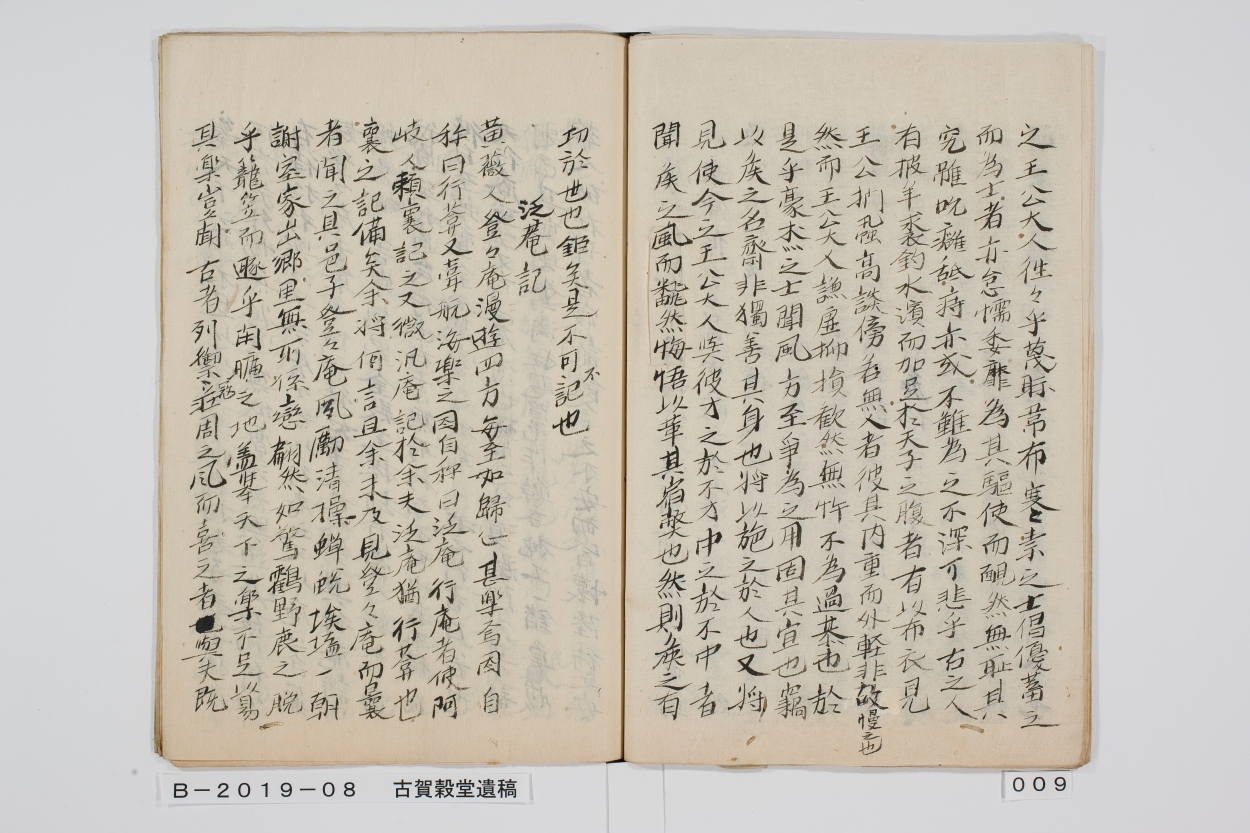 之王公大人往々乎蔑視韋布寒畯之士倡優蓄之
而為士者亦怠懦委靡為其驅使而靦然無恥其
究雖吮癰舐痔亦或不難為之不深可悲乎古之人
有披羊裘釣水濱而加足於天子之腹者有以布衣見
王公捫虱高談傍若無人者彼其内重而外軽非故慢之也
然而王公大人謙虚抑損歓然無忤不為過恭也於
是乎豪杰之士聞風方至爭為之用固其宜也竊
以侯之名齋非獨善其身也将以施之於人也又将
見使今之王公大人與彼才之於不才中之於不中者
聞侯之風而飜然悔悟以革其宿獘也然則侯之有
功於世也鉅矣是不可不記也
泛菴記
黄薇人登々庵漫遊四方每至如歸心甚樂焉因自
称曰行葊又嘗航海樂之因自称曰泛庵行庵者使阿
岐人賴襄記之又徴汎庵記於余夫泛庵猶行葊也
襄之記備矣余将何言且余未及見登々庵而曩
者聞之其邑子登々庵夙勵清操蟬蛻埃壒一朝
謝室家出郷里無所係戀翩然如驚鸛野鹿之脱
乎籠笠而遯乎閑曠之地盖挙天下之樂不足以易
其樂豈聞古者列禦寇莊周之風而喜之者與夫既
B－2019－08　古賀穀堂遺稿
009